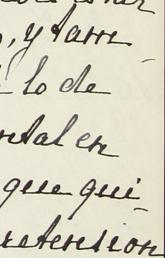 , y tam
lo de
ntal en
que qui
retension